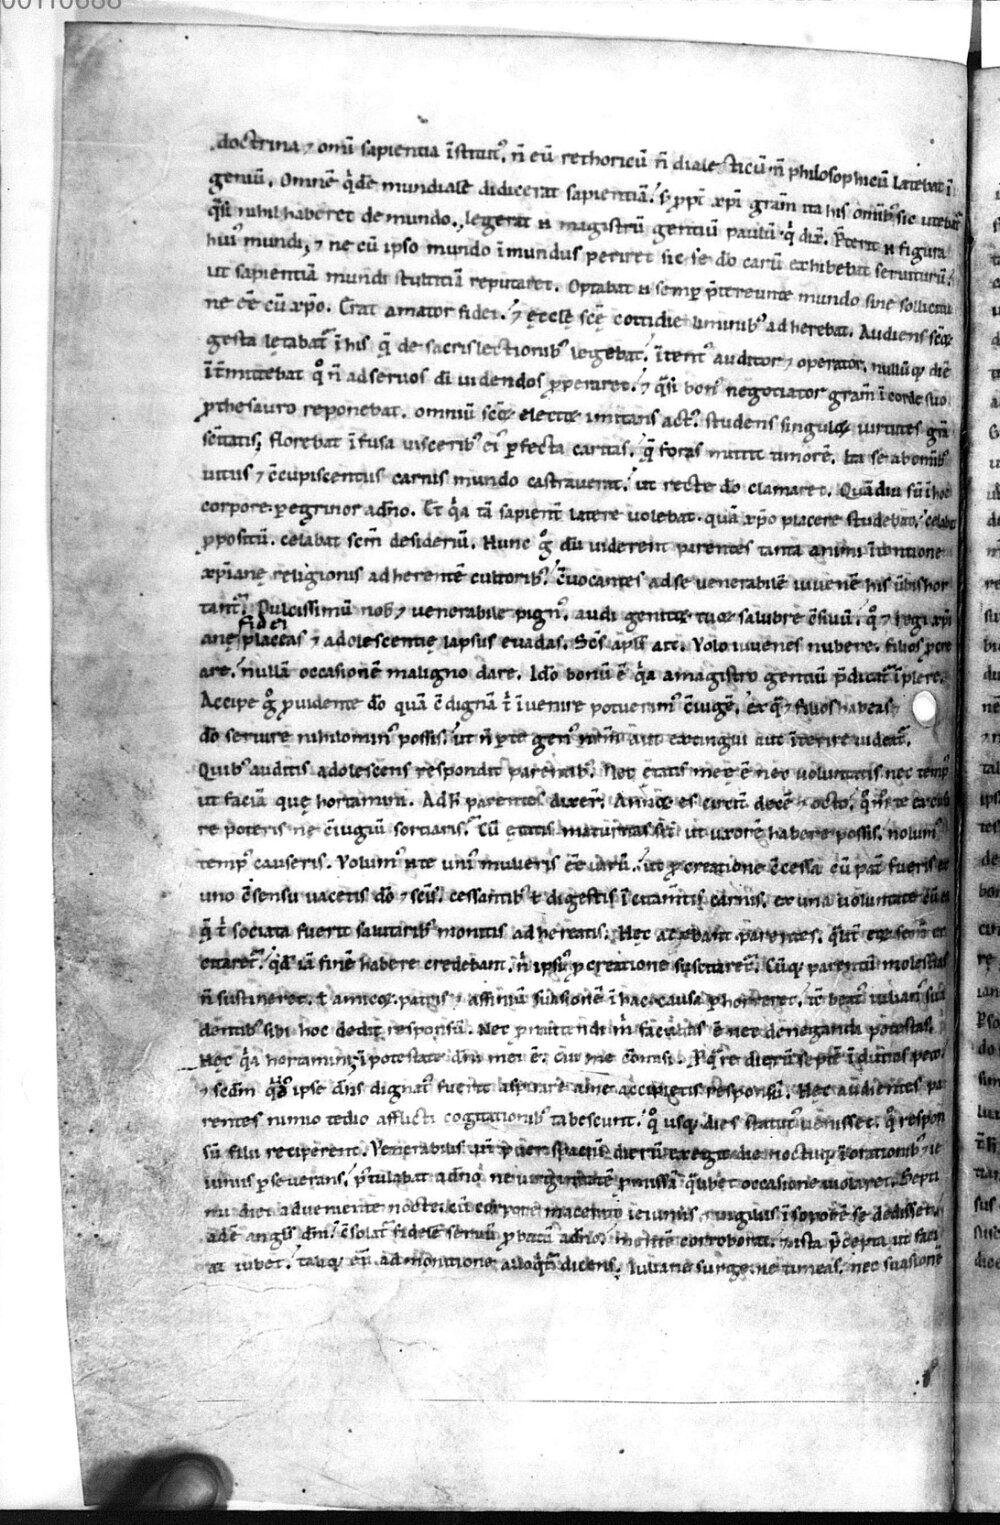 00110688
doctrina ⁊ omī sapientia īstitut᷒. ñ eū rethoricū ñ dialecticū ñ philosophicū latebat ī
geniū. Omnē q̇dē mundialē didicerat sapientiā. ꝑ xpī gram̄ ita his omīb᷒ sic utebat᷑
q̄si nihil haberet de mundo. legerat n̄ magistrū gentiū paulū q̇ dix̄. P̄terit n̄ figura
hui᷒ mundi, ⁊ ne cū ipso mundo īmundus periret sic se dō carū exhibebat seruiturū.
ut sapientiā mundi stultitiā reputaret. Optabat n̄ semꝑ p̄tereunte mundo sine sollicitu
ne eē cū xp̄o. Erat amator fidei. ⁊ ęcclę scę̄ cottidie liminib᷒ adherebat. Audiens scā
gesta lętabat᷑ ī his q̨ de sacris lectionib᷒ legebat. ītent᷒ auditor ⁊ operator. nullūq diē
īt̄mittebat qͦ ñ ad seruos dī uidendos ꝓperaret. ⁊ q̄si bon᷒ negotiator gram̄ ī corde suo
ꝓ thesauro reponebat. omniū scę̄ electę imitans act᷒. studens singulę uirtutes
sc̄itatis. florebat īfusa uiscerib᷒ ei᷒ ꝑfecta caritas. q̨ foras mittit timorē. Ita se ab omīb᷒
uitiis ⁊ c̄cupiscentiis carnis mundo castrauerat. ut recte dō clamaret. Quādiu sū ī hoc
corpore. ꝑegrinor a dn̄o. Et q̇a tā sapient̄ latere uolebat. quā xp̄o placere studebat. celabat
ꝓpositū. celabat scm̄ desideriū. Hunc g̊ dū uiderent parentes tanta animi ītentione
xp̄ianę religionis adherentē cultorib᷒. c̄uocantes ad se uenerabilē iuuenē his ūbis hor
tant᷑. Dulcissimū nob̄ ⁊ uenerabile pign᷒. audi genitorū tuorū salubre c̄siliū. qͦ ⁊ legi xp̄i
fidei
anę placeas ⁊ adolescentię lapsus euadas. Scs̄ apl̄s ait. Volo iuuenes nubere. filios ꝓcre
are. nullā occasionē maligno dare. Idō bonū ē q̇a a magistro gentiū p̄dicat᷑ īplere.
Accipe g̊ ꝓuidente dō quā c̄dignā t̄ īuenire potuerim᷒ c̄iugē. ex q̨ ⁊ filios habeas ⁊
dō seruire nihilomin᷒ possis. ut ñ ꝑ te gen᷒ nr̄m aut extingui aut īterire uideat᷑.
Quib᷒ auditis adolescens respondit parentib᷒. Nec ętatis meę ē nec uoluntatis nec temp᷒
ut faciā quę hortamini. Ad h̄ parentes dixer̄. Annorū es circit̄ decē ⁊ octo. te excusa
re poteris ne c̄iugiū sortiaris. Cū ętatis maturitas ut uxorē habere possis. nolum᷒
temp᷒ causeris. Volum᷒ n̄ te uni᷒ mulieris eē uirū. ut ꝓcreatione c̄cessa cū pat̄ fueris ex
uno c̄sensu uacetis dō ⁊ scīs. cessantib᷒ ł digestis īcitam̄tis carnis. ex una uoluntate cū ea
q̨ t̄ sociata fuerit salutarib᷒ monitis adhereatis. Hęc aiebant parentes.
citaret᷑. qd̄ iā finē habere credebant. ñ ipsi᷒ ꝓcreatione suscitaret᷑. Cūq parentū molestias
ñ sustineret. ł amicorū. patris ⁊ affiniū suasionē ī hac causa ꝑhorreret. tc̄ beat᷒ iulian᷒ sua
dentib᷒ sibi hoc dedit responsū. Nec ꝓmittendi m̄ facultas ē nec denegandi potestas.
Hęc q̇a hortamini, ī potestate dn̄i mei ē. cui me c̄misi. dierū septē īdutias peto.
⁊ scdm̄ qd̄ ipse dn̄s dignat᷒ fuerit aspirare a me accipietis responsū. Hęc audientes pa
rentes nimio tedio afflicti cogitationib᷒ tabescunt. qͦ usq dies statut᷒ uenisset. qͦ respon
sū filii reciperent. Venerabilis ꝑ uer spaciū dierū exegit die noctuq ī orationib᷒ ⁊ ie
iuniis ꝑseuerans. p̄stulabat a dn̄o ne uirginitatē ꝓmissā q̄libet occasione uiolaret. Septi
mi diei adueniente nocte. cū corpore macerato ieiuniis ⁊ uigiliis ī soporē se dedisset.
adē angl̄s dn̄i. c̄solat᷑ fidelē seruū ꝓbatū a dn̄o. mentē corroborat. ⁊ ista p̄cepta ut faci
at iubet. taliq eū admonitione alloq̄t᷑ dicens. Iuliane surge. ne timeas. nec suasionē